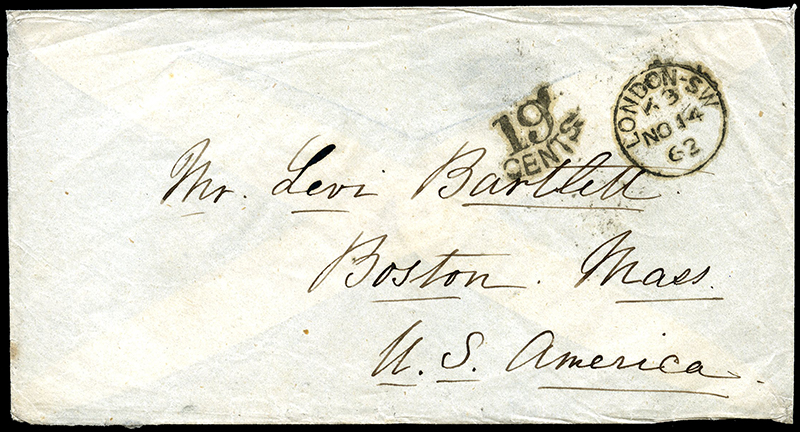 19
CENTS
LONDON-SW
K 3
NO 14
62
Mr. Levi Bartlett.
Boston. Mass.
U. S. America.